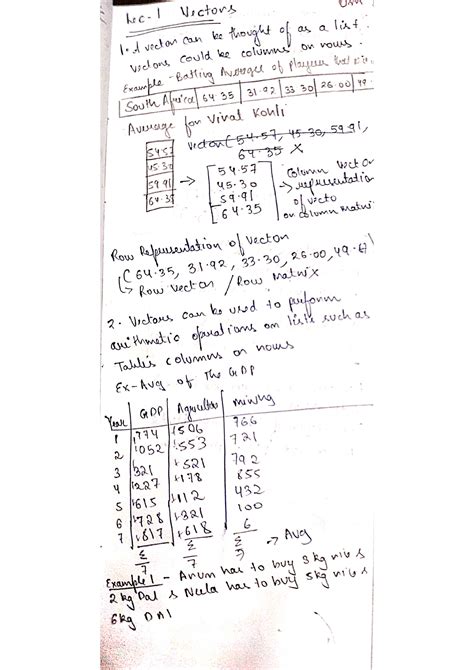 Lec-1 Vectors
1. A vector can be thought of as a list.
vectors could be columns or rows.
Example - Batting Averages of Players
South Africa | 64.35 | 31.92 | 33.30 | 26.00 | 49.
Average for Virat Kohli
vector(54.57, 45.30, 59.91,
64.35 X
54.57 54.57 Column Vector
45.30 45.30 → representation
59.91 59.91 of vecto
64.35 64.35 or column Matrix
Row Representation of Vector
(64.35, 31.92, 33.30, 26.00, 49.
↳ Row Vector / Row Matrix
2. Vectors can be used to perform
arithmetic operations on lists such as
Tables columns or rows
Ex- Avg of The GDP
Year GDP Agriculture mining
1 .774 1506 766
2 1052 1553 721
3 .321 1.521 792
4 .227 1.178 855
5 .615 .112 432
6 .728 1.321 100
7 .617 1.618 6
Σ/7 Σ/7 Σ/7 → Avg
Example 1 - Arun has to buy 3 kg
2 kg Dal & Neela has to buy 5kg
6kg DAl